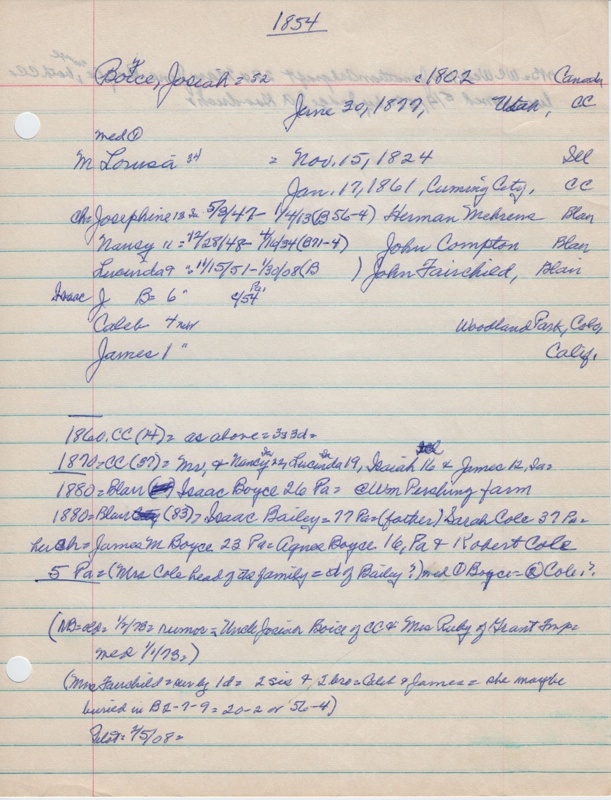 1854
Boyce, Josiah = 52 c1802 Canada
June 30, 1877, Utah, CC
med ①
m Lovusa 34 = Nov. 15, 1824 Del
Jan. 17, 1861, Cuming City, CC
ch= Josephine 13 Ia 5/3/47 - 1/4/13 (B 56-4) Herman Mehrens Blair
Nancy 11 = 12/28/48 - 4/16/34 (B71-4) John Compton Blair
Lucinda 9 = 11/15/51 - 1/30/08 (B ) John Fairchild, Blair
Isaac J B= 6 " c/54 Pa.
Caleb 4 Woodland Park, Colo,
James 1 " Calif.
1860, CC (14) = as above = 3s 3d =
1870 = CC (37) = Mr, & Nancy 22, Lucinda 19, Isaiah 16 & James 12, Ia =
1880 = Blair Isaac Boyce 26 Pa = @ Wm Pershing farm
1880 = Blair (83) = Isaac Bailey = 77 Pa = (father) Sarah Cole 37 Pa =
her ch = James M Boyce 23 Pa = Agnes Boyce 16, Pa & Robert Cole
5 Pa = (Mrs Cole head of the family = d of Bailey?) med ① Boyce = ② Cole?
(NB = dtd = 1/9/73 = rumor = Uncle Josiah Boice of CC & Mrs Ruby of Grant Twp =
med 1/1/73 =)
(Mrs Fairchild = surv by 1d = 2 sis & 2 bro = Caleb & James = she maybe
buried in B2-7-9 = 20-2 or 56-4)
Pilot = 2/5/08 =